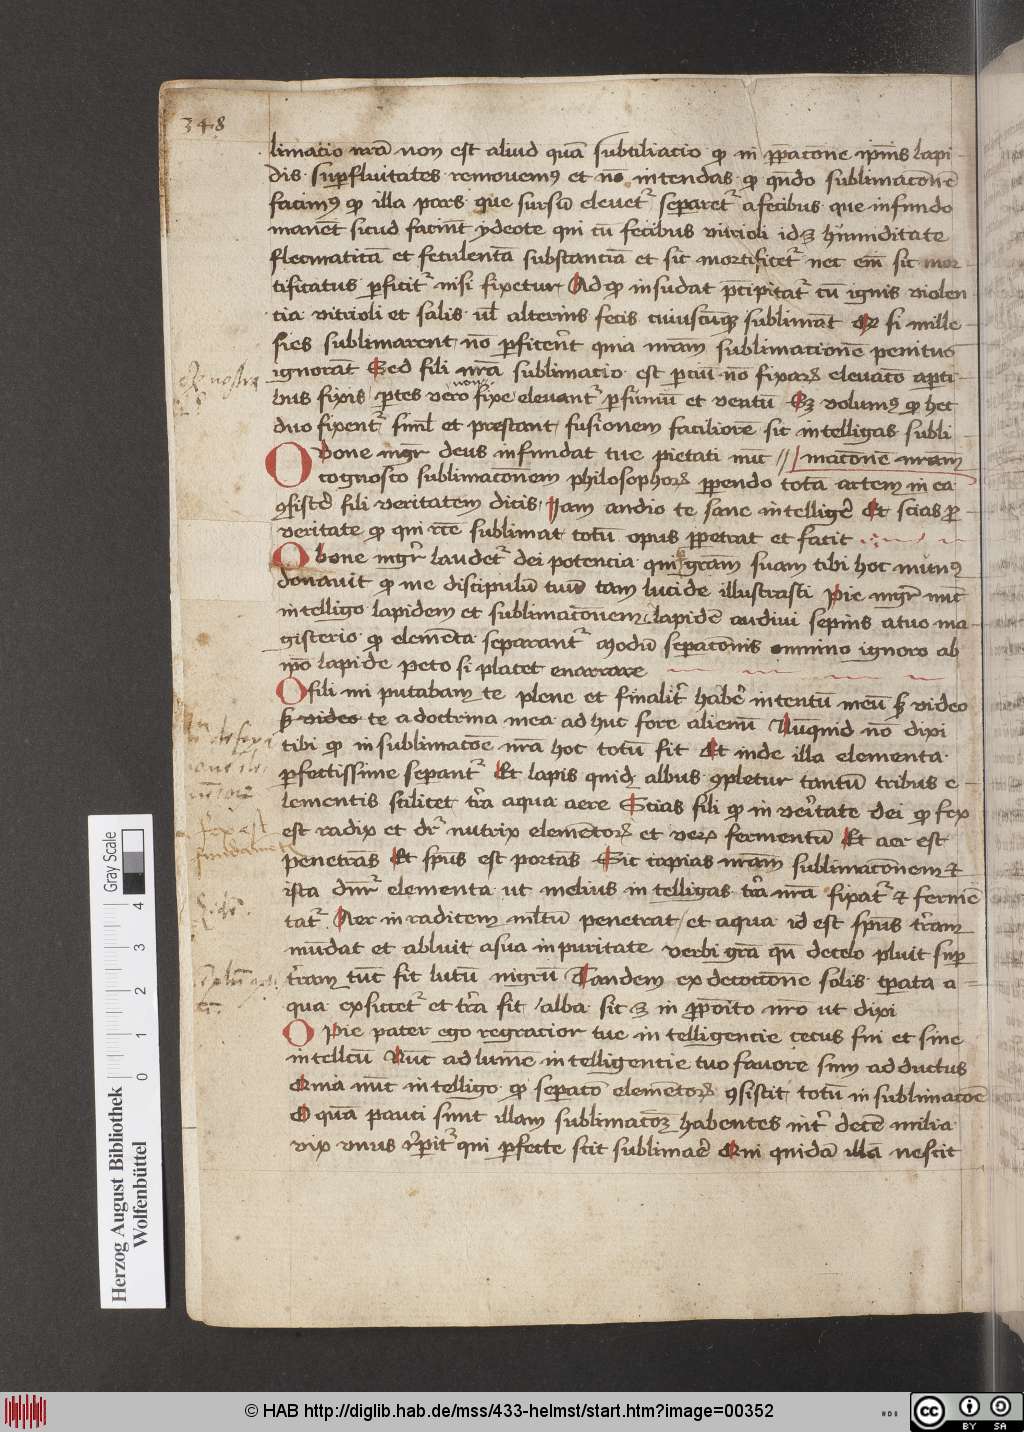 348
limacio nrā non est aliud quā subtiliacio qʒ in ꝑpacone ipius lapi-
dis suꝑfluitates removemꝰ et nō intendas qʒ qn̄do sublimaconē
facimꝰ qʒ illa pars que sursū elevet᷑ separet᷑ a fecibus que in fundo
manēt sicud faciūt ydeote qui cū fecibus vitrioli idʒ humiditate
flecmaticā et fetulentā substanciā et sic mortificet᷑ nec em̄ sic mor-
tificatus ꝑficit᷑ nisi fixetur Ad qʒ insudat p̄cipitat᷑ cū ignis violen
cia vitrioli et salis vl̄ alterius fecis cuiuscūqʒ sublimāt Et si mille-
sies sublimarent nō ꝑficer̄t quia nrām sublimacionē penitus
ignorāt Sed fili nrā sublimacio est ꝑciū nō fixarꝝ elevaco a ꝑti-
bus fixis ꝑtes vero non fixe elevant᷑ ꝑ fumū et ventū Sʒ volumꝰ qʒ hec
duo fixent᷑ siml̄ et prestant fusionem faciliorē sic intelligas subli
O bone mgr̄ deus infundat tue pietati nuc // macionē nram
cognosco sublimaconem philosophorꝝ ꝑpendo totā artem in ea
ꝯsister̄ fili veritatem dicis Jam audio te sane intelliger̄ Et scias ꝑ
veritate qʒ qui rc̄e sublimat totū opus ꝑpetrat et facit
O bone mgr̄ laudet᷑ dei potencia qui grām suam tibi hoc munꝰ
donavit qʒ me discipulū tuū tam lucide illustrasti Pie mgr̄ nuc̄
intelligo lapidem et sublimaconem lapidē audivi sepius a tuo ma-
gisterio qʒ elemēta separant᷑ Modū sepaconis omnino ignoro ab
ipo lapide peto si placet enarrare
O fili mi putabam te plene et finalit᷑ haber̄ intentū meū sʒ video
sʒ video te a doctrina mea ad huc fore alienū Nūquid nō dixi
tibi qʒ in sublimacoe nrā hoc totū fit Et inde illa elementa
ꝑfectissime sepant᷑ Et lapis quidʒ albus ꝯpletur tantū tribus e-
lementis scilicet tr̄a aqua aere Scias fili qʒ in vēritate dei qʒ fex
est radix et dr̄ nutrix elemētorꝝ et verꝝ fermentū Et aer est
penetrās Et spūs est portās Sic capias nrām sublimaconem et
ista dn̄r elementa ut melius intelligas tr̄a nrā fixat᷑ et fermē
tat᷑ Aer in radicem ml̄tū penetrat et aqua id est spūs tr̄am
mūdat et abluit a sua inpuritate verbi grā qn̄ de celo pluit suꝑ
tr̄am tūc fit lutū nigrū Tandem ex decoccone solis tꝑata a-
qua exsiccet᷑ et tr̄a fit alba sic ʒ in ꝓpoito nr̄o ut dixi
O Pie pater ego regracior tue intelligencie cecus fui et sine
intellcū Nuc ad lumē intelligencie tuo favore sum adductus
Om̄ia nuc̄ intelligo qʒ sepaco elemētorꝝ ꝯsistit totū in sublimacoe
O quā pauci sunt illam sublimacoʒ habentes int᷑ decē milia
vix vnus rꝑit᷑ qui ꝑfecte scit sublimar̄ Qui quidā illā nescit
fex est
fundament
Gray Scale
0 1 2 3 4
Herzog August Bibliothek
Wolfenbüttel
© HAB http://diglib.hab.de/mss/433-helmst/start.htm?image=00352
BY SA